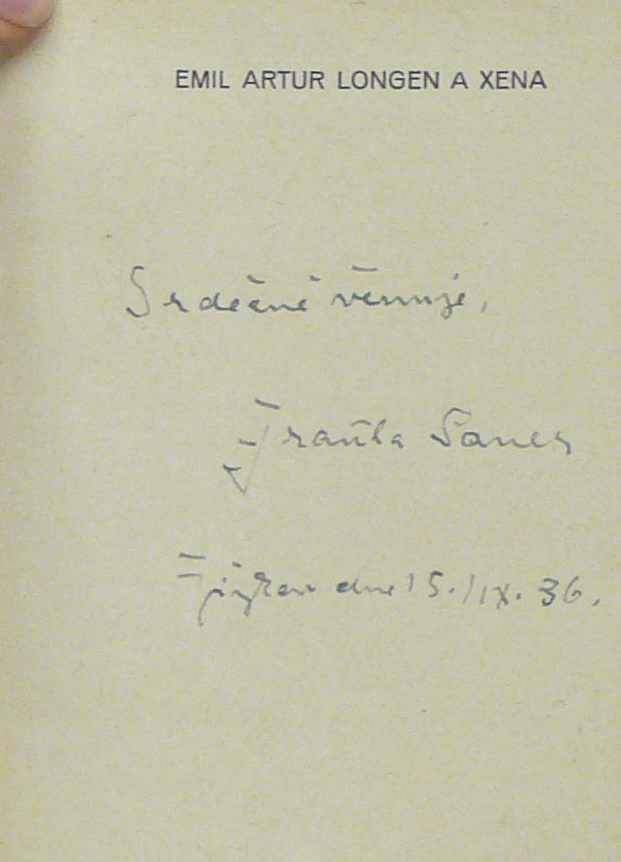 EMIL ARTUR LONGEN A XENA
Srdečně věnuje,
Franta Sauer
Žižkov dne 15./IX. 36.